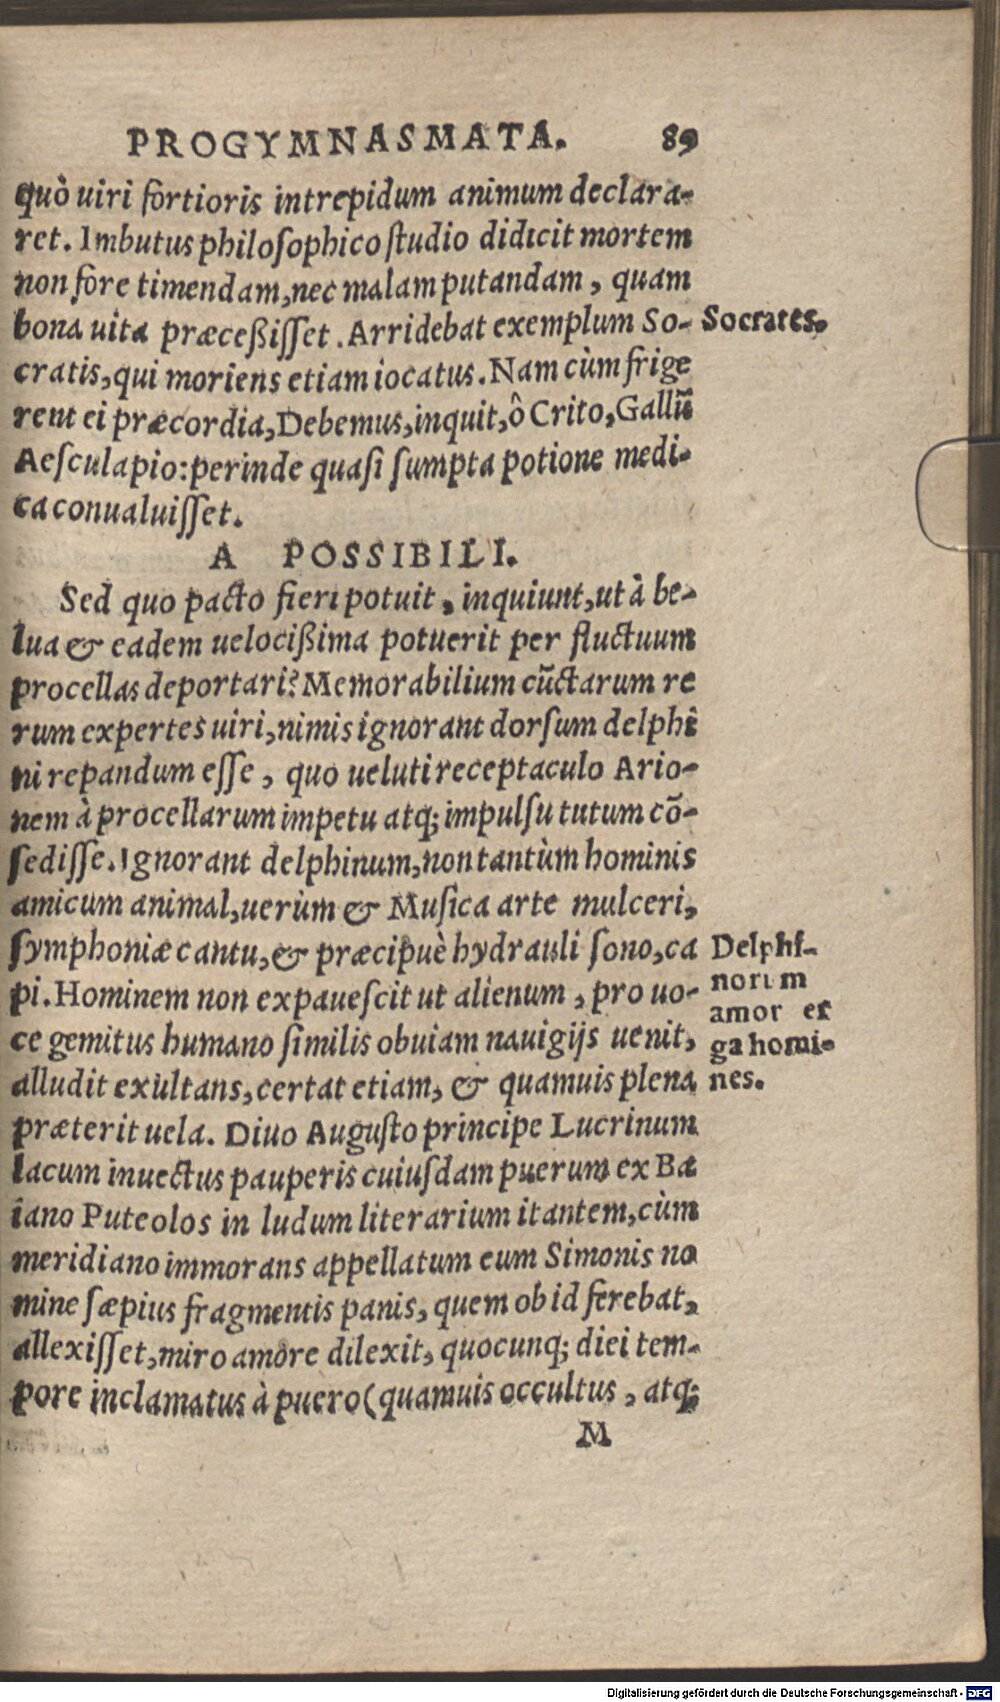 PROGYMNASMATA. 89
quò uiri fortioris intrepidum animum declara-
ret. Imbutus philosophico studio didicit mortem
non fore timendam, nec malam putandam, quam
bona uita præceßisset. Arridebat exemplum So-
Socrates.
cratis, qui moriens etiam iocatus. Nam cùm frige
rent ei præcordia, Debemus, inquit, ô Crito, Gallũ
Aesculapio: perinde quasi sumpta potione medi-
ca conualuisset.
A POSSIBILI.
Sed quo pacto fieri potuit, inquiunt, ut à be-
lua & eadem uelocißima potuerit per fluctuum
procellas deportari? Memorabilium cũctarum re
rum expertes uiri, nimis ignorant dorsum delphi
ni repandum esse, quo ueluti receptaculo Ario-
nem à procellarum impetu atq; impulsu tutum cõ-
sedisse. Ignorant delphinum, non tantùm hominis
amicum animal, uerùm & Musica arte mulceri,
symphoniæ cantu, & præcipuè hydrauli sono, ca
pi. Hominem non expauescit ut alienum, pro uo-
ce gemitus humano similis obuiam nauigijs uenit,
alludit exultans, certat etiam, & quamuis plena
Delphi-
norum
amor er
ga homi-
nes.
præterit uela. Diuo Augusto principe Lucrinum
lacum inuectus pauperis cuiusdam puerum ex Ba
iano Puteolos in ludum literarium itantem, cùm
meridiano immorans appellatum eum Simonis no
mine sæpius fragmentis panis, quem ob id ferebat,
allexisset, miro amore dilexit, quocunq; diei tem-
pore inclamatus à puero (quamuis occultus, atq;
M
Digitalisierung gefördert durch die Deutsche Forschungsgemeinschaft - DFG